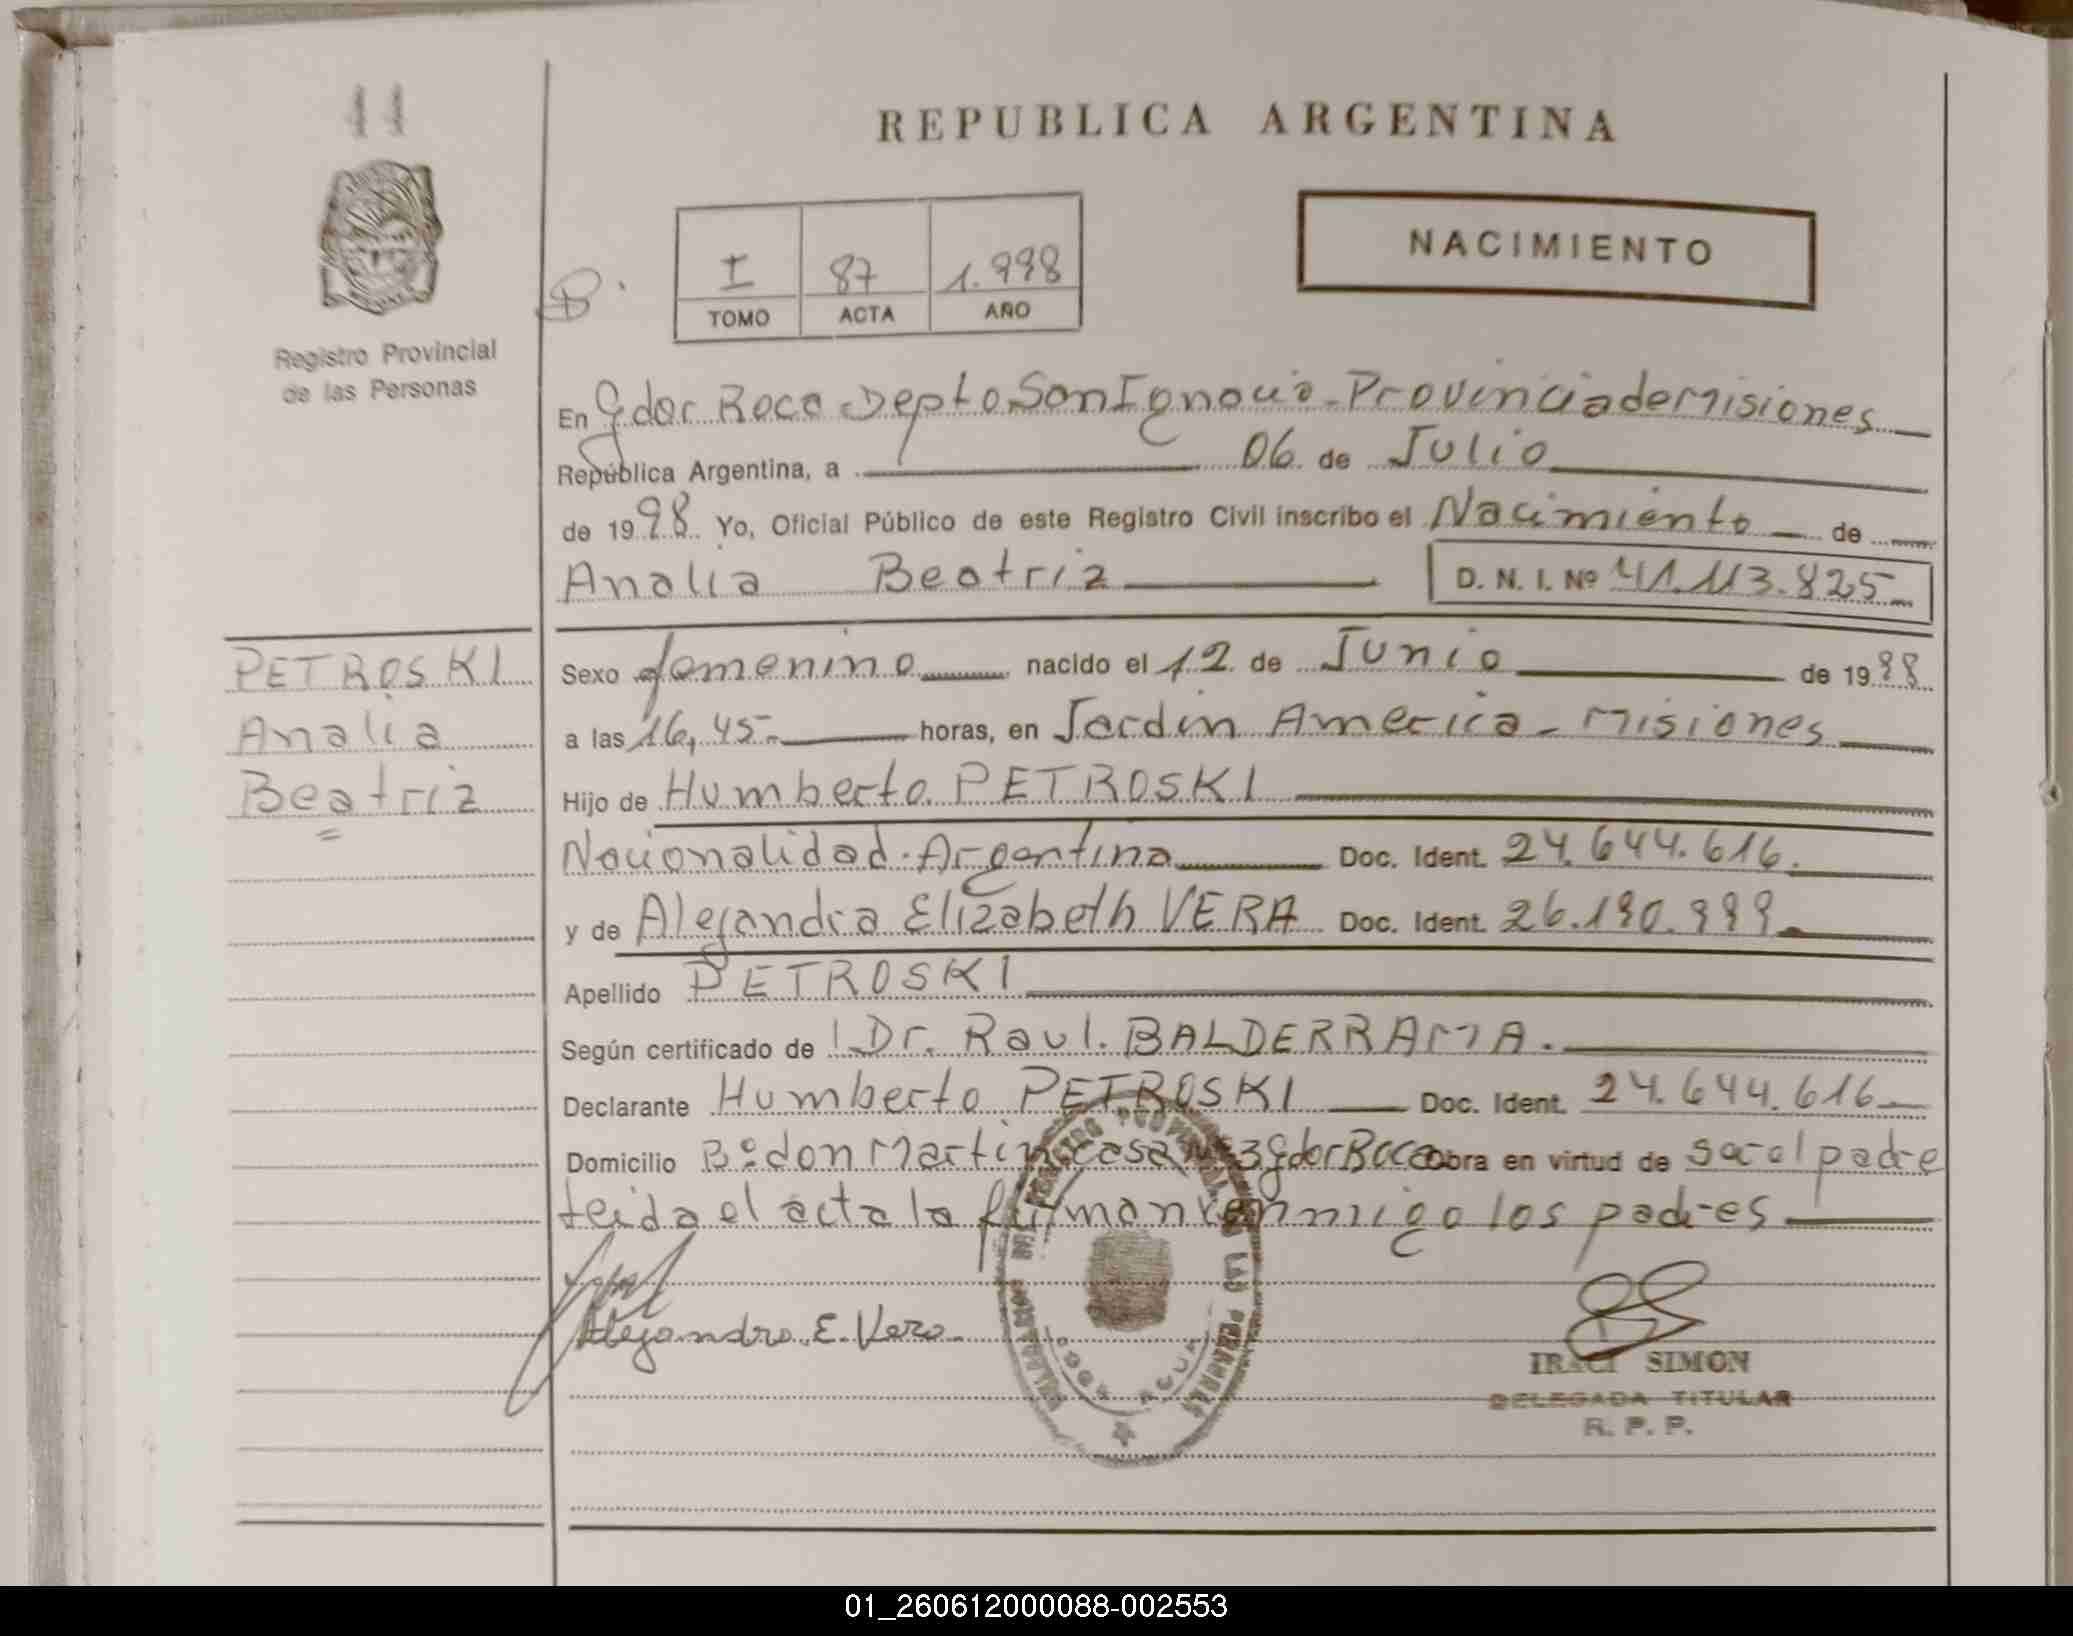 REPUBLICA ARGENTINA
NACIMIENTO
I 87 1.998
TOMO ACTA AÑO
Registro Provincial
de las Personas
En Gdor Roca Depto San Ignacio - Provincia de Misiones
República Argentina, a 06 de Julio
de 1998 Yo, Oficial Público de este Registro Civil inscribo el Nacimiento de
Analia Beatriz D. N. I. Nº 41.113.825
PETROSKI
Analia
Beatriz
Sexo femenino nacido el 12 de Junio de 1998
a las 16,45 horas, en Jardin America - Misiones
Hijo de Humberto PETROSKI
Nacionalidad Argentina Doc. Ident. 24.644.616.
y de Alejandra Elizabeth VERA Doc. Ident. 26.190.999.
Apellido PETROSKI
Según certificado de Dr. Raul. BALDERRAMA.
Declarante Humberto PETROSKI Doc. Ident. 24.644.616
Domicilio Bº don Martin casa Nº 3 Gdor Roca Obra en virtud de ser el padre
leida el acta la firman conmigo los padres
Alejandra E. Vera
REGISTRO PROVINCIAL DE LAS PERSONAS
IRACI SIMON
DELEGADA TITULAR
R. P. P.
01_260612000088-002553